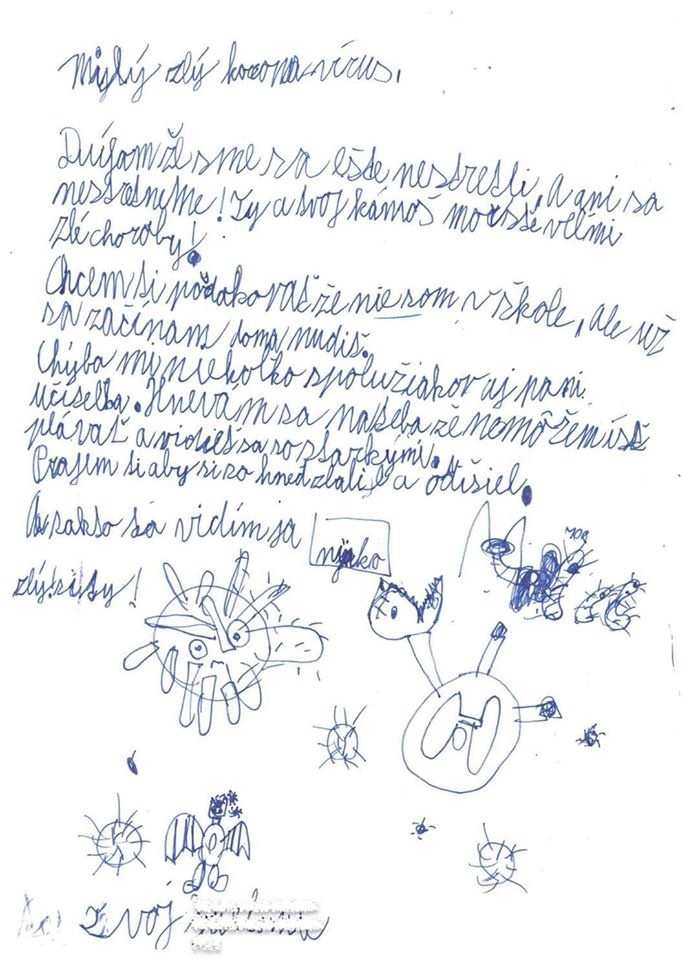 Milý zlý korona vírus,
Dúfam že sme sa ešte nestretli, a ani sa
nestretneme! Ty a tvoj kámoš mor ste veľmi
zlé choroby!
Chcem si poďakovať že nie som v škole, ale už
sa začínam doma nudiť.
Chýba mi niekoľko spolužiakov aj pani
učiteľka. Hnevám sa na teba že nemôžem ísť
plávať a vidieť sa so starkými.
Prajem si aby si so hneď zbalil a odišiel.
A takto ťa vidím ja
zlý si ty!
Tvoj